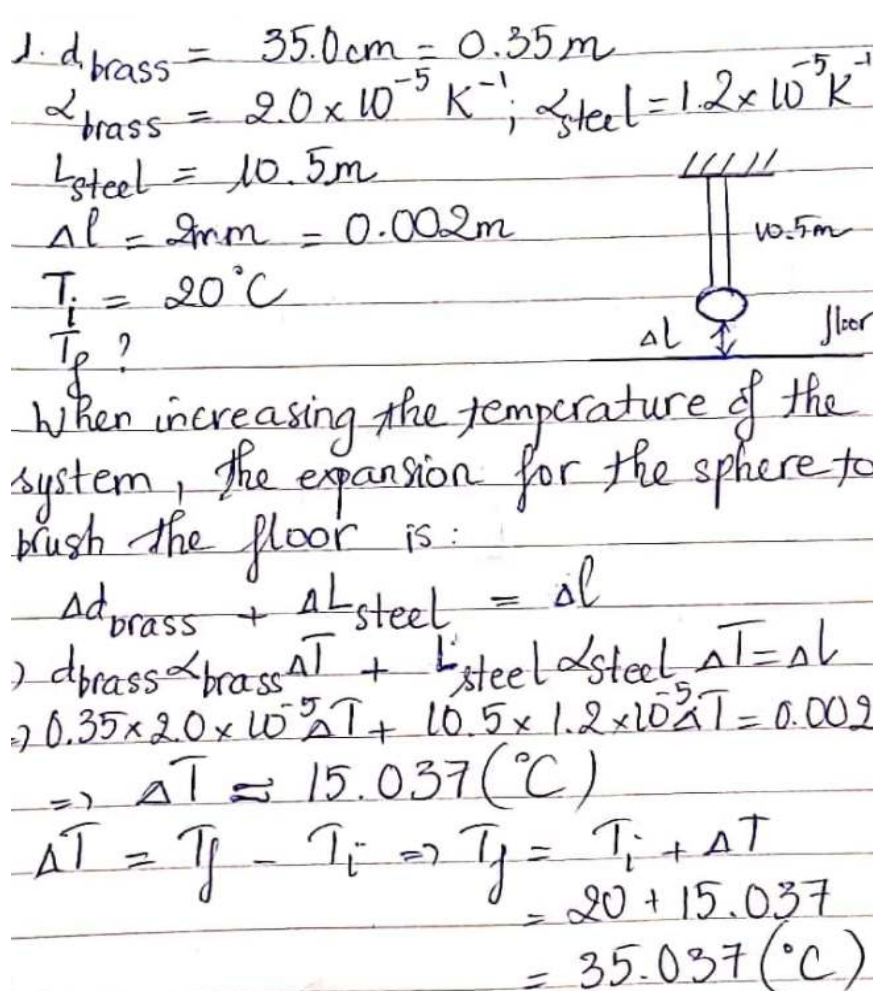 1. d_brass = 35.0cm = 0.35m
α_brass = 2.0 × 10⁻⁵ K⁻¹; α_steel = 1.2 × 10⁻⁵ K⁻¹
L_steel = 10.5m
Δl = 2mm = 0.002m
10.5m
T_i = 20°C
Δl floor
T_f ?
When increasing the temperature of the
system, the expansion for the sphere to
brush the floor is:
Δd_brass + ΔL_steel = Δl
⇒ d_brass α_brass ΔT + L_steel α_steel ΔT = Δl
⇒ 0.35 × 2.0 × 10⁻⁵ ΔT + 10.5 × 1.2 × 10⁻⁵ ΔT = 0.002
⇒ ΔT ≈ 15.037 (°C)
ΔT = T_f - T_i ⇒ T_f = T_i + ΔT
= 20 + 15.037
= 35.037 (°C)